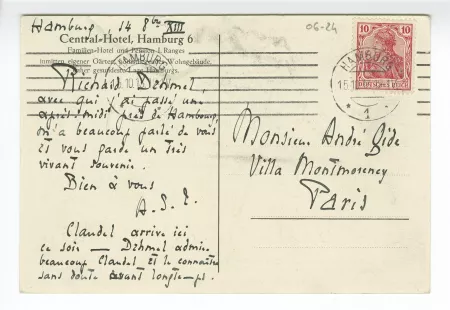 Hamburg 14 8bre XIII
06-24
Central-Hotel, Hamburg 6
Familien-Hotel und Pension I. Ranges
inmitten eigener Gärten,
Richard Dehmel,
avec qui j'ai passé une
après-midi près de Hambourg,
m'a beaucoup parlé de vous
et vous garde un très
vivant souvenir.
Bien à vous
Claudel arrive ici
ce soir — Dehmel admire
beaucoup Claudel et le connaîtra
sans doute avant longtemps.
10
10
DEUTSCHES REICH
HAMBURG
HAMBURG
* 1 *
Monsieur André Gide
Villa Montmorency
Paris